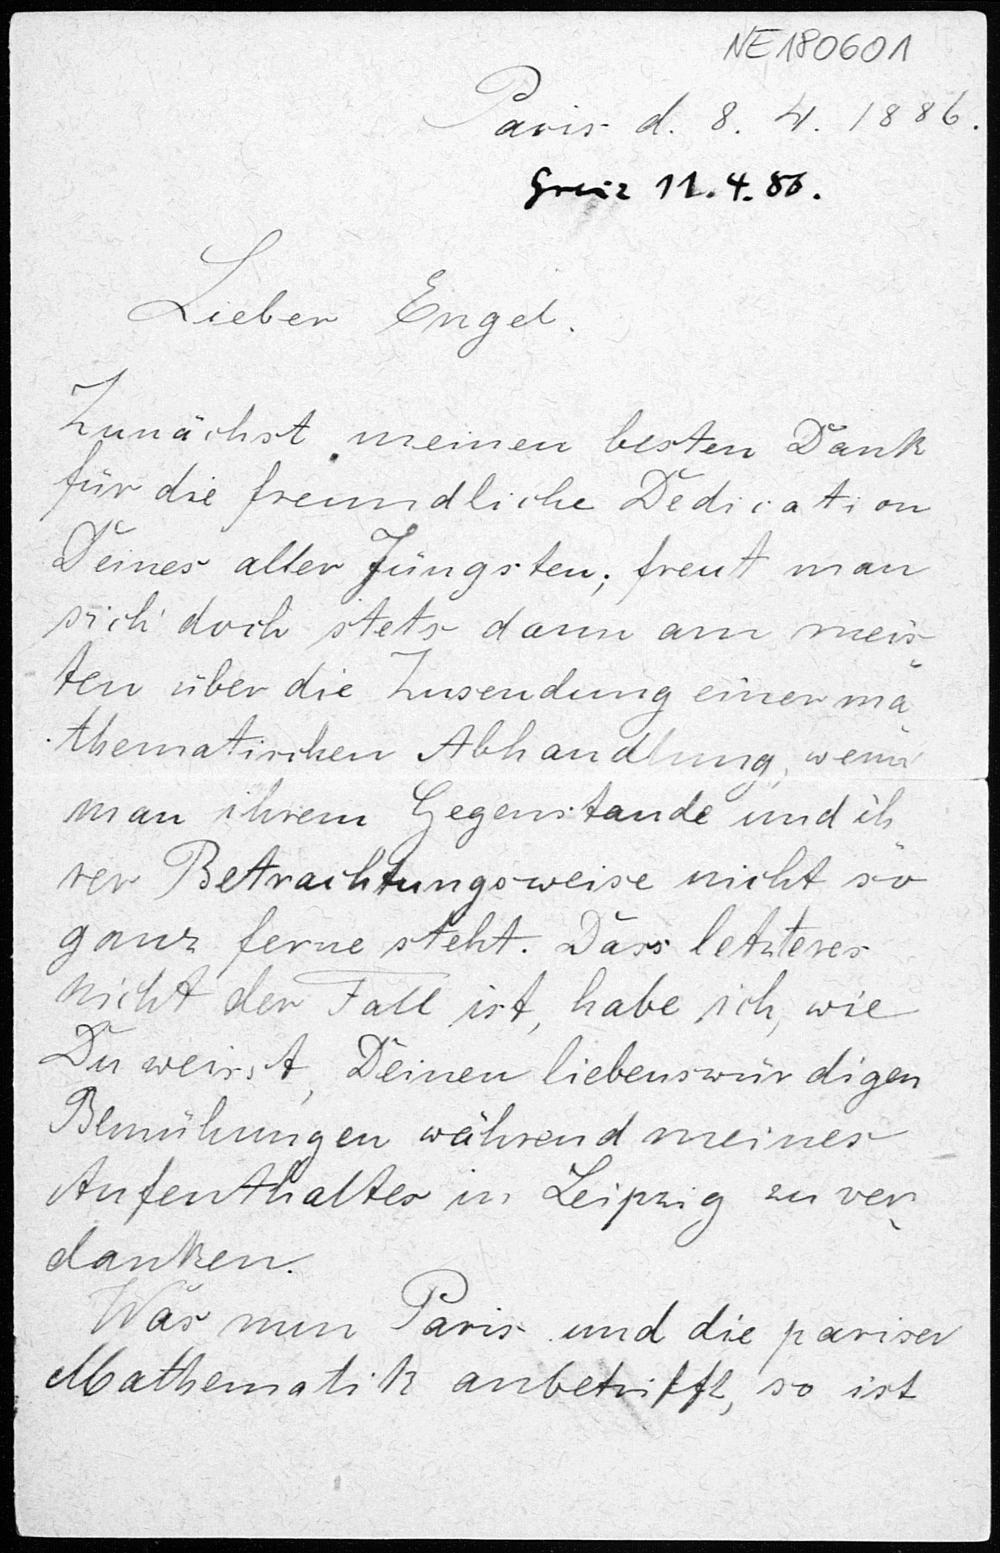 NE180601
Paris d. 8. 4. 1886.
Greiz 11.4.86.
Lieber Engel.
Zunächst meinen besten Dank
für die freundliche Dedication
Deines aller Jüngsten; freut man
sich doch stets dann am meis-
ten über die Zusendung einer ma-
thematischen Abhandlung, wenn
man ihrem Gegenstande und ih
rer Betrachtungsweise nicht so
ganz ferne steht. Dass letzteres
nicht der Fall ist, habe ich, wie
Du weisst, Deinen liebenswürdigen
Bemühungen während meines
Aufenthaltes in Leipzig zu ver-
danken.
Was nun Paris und die pariser
Mathematik anbetrifft, so ist